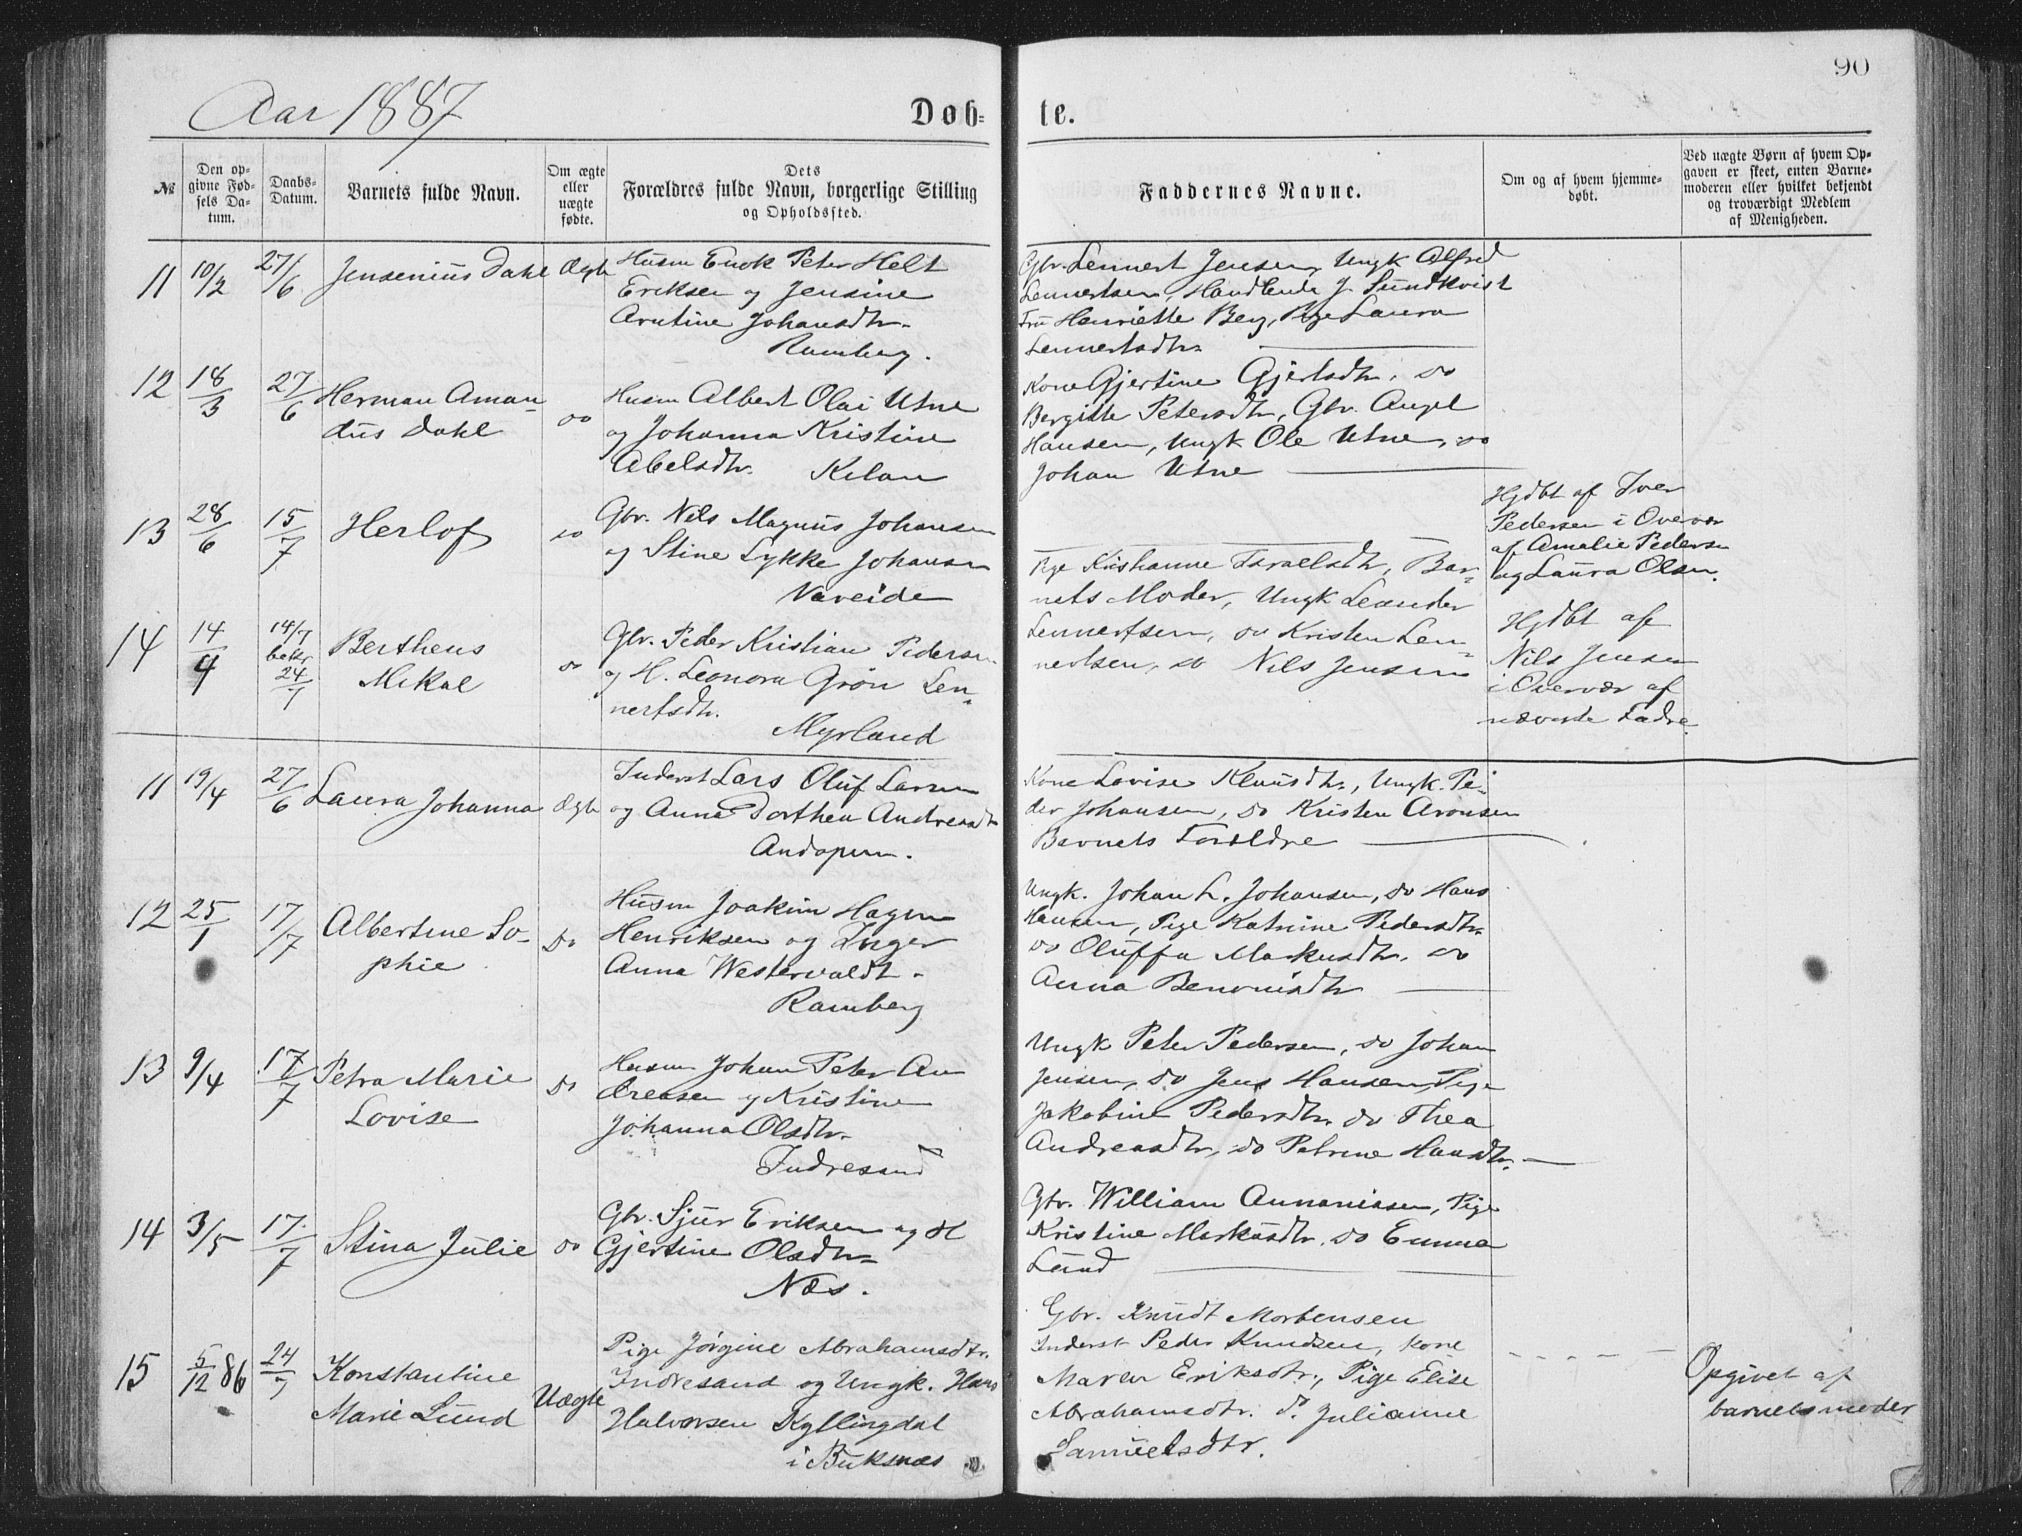 90
Aar 1887
Døb-
te.
№
Den op-
givne Fød-
sels Da-
tum.
Daabs-
Datum.
Barnets fulde Navn.
Om ægte
eller
uægte
fødte.
Dets
Forældres fulde Navn, borgerlige Stilling
og Opholdssted.
Faddernes Navne.
Om og af hvem hjemme-
døbt.
Ved uægte Børn af hvem Op-
gaven er skeet, enten Barne-
moderen eller hvilket bekjendt
og troværdigt Medlem
af Menigheden.
11 10/2 27/6 Jensenius Dahl Ægte
Husm Enok Peter Helt
Eriksen og Jensine
Arntine Johansdtr.
Ramberg.
Gbr. Lennert Jensen, Ungk Alfred
Lennertsen, Handlende J. Sundkvist
Fru Henriette Berg, Pige Laura
Lennertsdtr.
12 18/3 27/6 Herman Aman-
dus Dahl
do
Husm Albert Olai Utne
og Johanna Kristine
Abelsdtr. Kilan
Kone Gjertine Gjertsdtr. do
Bergitte Petersdtr, Gbr. Angel
Hansen, Ungk Ole Utne, do
Johan Utne
13 28/6 15/7 Herlof do
Gbr. Nils Magnus Johansen
og Stine Lykke Johansen
Nareide
Hjdbt af Iver
Pedersen i Overvær
af Amalie Pedersen
og Laura Olsen.
14 14/4 14/7
bekr
24/7
Berthens
Mikal
do
Gbr. Peder Kristian Pedersen
og H. Leonora Grøn Len-
nertsdtr.
Myrland
Pige Kristianne Israelsdtr, Bar-
nets Moder, Ungk Leander
Lennertsen, do Kristen Len-
nertsen, do Nils Jensen
Hjdbt af
Nils Jensen
i Overvær af
nævnte Fadre.
11 19/4 27/6 Laura Johanna Ægte
Inderst Lars Oluf Larsen
og Anna Dorthea Andreasdtr
Andopen.
Kone Lovise Klausdtr., Ungk. Pe-
der Johansen, do Kristen Aronsen
Barnets Forældre
12 25/1 17/7 Albertine So-
phie
Do
Husm Joakim Hagen
Henriksen og Inger
Anna Westervaldt.
Ramberg
Ungk. Johan L. Johansen, do Hans
Hansen, Pige Katrine Pedersdtr.
do Oluffa Markusdtr. do
Anna Benonisdtr
13 9/4 17/7 Petra Marie
Lovise
Do
Husm Johan Peter An
dreasen og Kristine
Johanna Olsdtr.
Indresand
Ungk Peter Pedersen, do Johan
Jensen, do Jens Hansen, Pige
Jakobine Pedersdtr. do Thea
Andreasdtr, do Petrine Hansdtr.
14 3/5 17/7 Stina Julie do
Gbr. Sjur Eriksen og H
Gjertine Olsdtr.
Næs.
Gbr. William Annaniasen, Pige
Kristine Markusdtr. do Emma
Lund
15 5/12 86 24/7 Konstantine
Marie Lund
Uægte
Pige Jørgine Abrahamsdtr.
Indresand og Ungk. Hans
Halvorsen Kyllingdal
i Buksnæs
Gbr. Knudt Mortensen
Inderst Peder Knudsen, Kone
Maren Eriksdtr., Pige Elise
Abrahamsdtr. do Julianne
Samuelsdtr.
Opgivet af
barnets moder